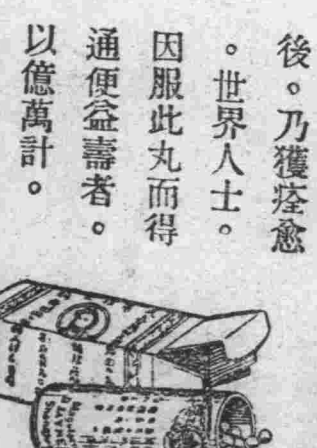 後。乃獲痊愈
。世界人士。
因服此丸而得
通便益壽者。
以億萬計。